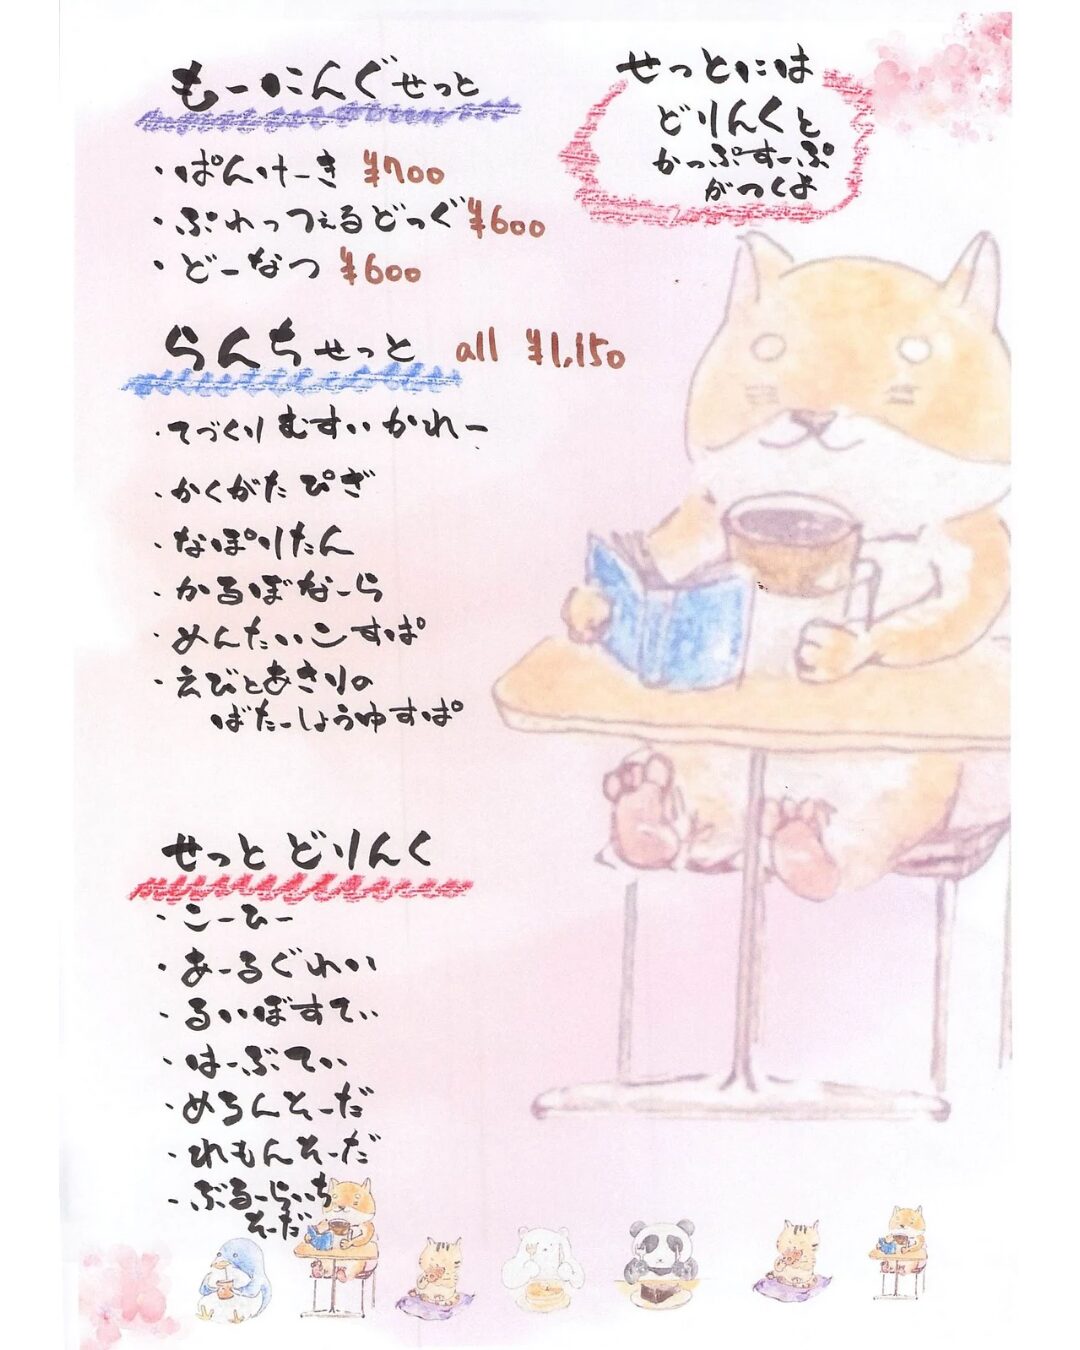 もーにんぐせっと
・ぱんけーき ¥700
・ぷわっつぇるどっぐ ¥600
・どーなつ ¥600
せっとには
どりんくと
かっぷすーぷ
がつくよ
らんちせっと all ¥1,150
・てづくりむすいかれー
・かくがたぴざ
・なぽりたん
・かるぼなーら
・めんたいこすぱ
・えびとあさりの
ばたーしょうゆすぱ
せっとどりんく
・こーひー
・あーるぐれい
・るいぼすてぃ
・はーぶてぃ
・めろんそーだ
・れもんそーだ
・ぶるーらいち
そーだ